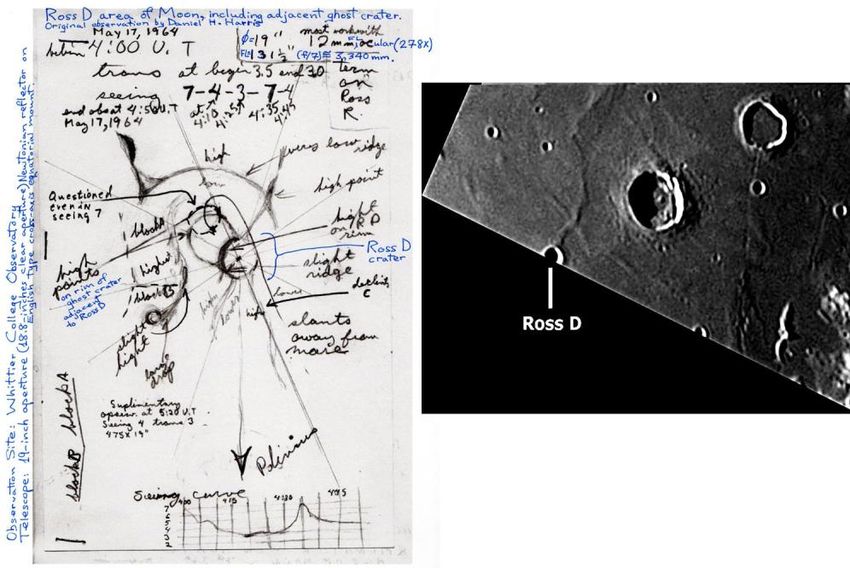 Ross D area of Moon, including adjacent ghost crater.
Original observation by Daniel H. Harris
May 17, 1964
begin 4:00 U.T
ϕ=19"
most work with
12 mm; ocular (278X)
FL=131½" (f/7)≅ 3,340 mm.
trans at begin 3.5 end 3.0
seeing 7-4-3-7-4
end about 4:50 U.T
May 17, 1964
at 4:10
4:25
4:35
4:47
Term
on
Ross
R.
high
very low ridge
low
high point
Questioned
even in
seeing 7
block A
hight
on R D
rim
Ross D
crater
high
points
on rim of
ghost crater
adjacent
to Ross D
higher
slight
ridge
block B
high
lower
lower
higher
slight
hight
low
drop
slants
away from
mare
Suplimentary
opser. at 5:20 U.T
Seeing 4 trans 3
475X 19"
block A
block B
Plinius
Seeing curve
4:00
4:15
4:30
4:45
7
6
5
4
Observation Site: Whittier College Observatory
Telescope: 19-inch aperture (18.8-inches clear aperture) Newtonian reflector on
English type cross-axis equatorial mount.
Ross D